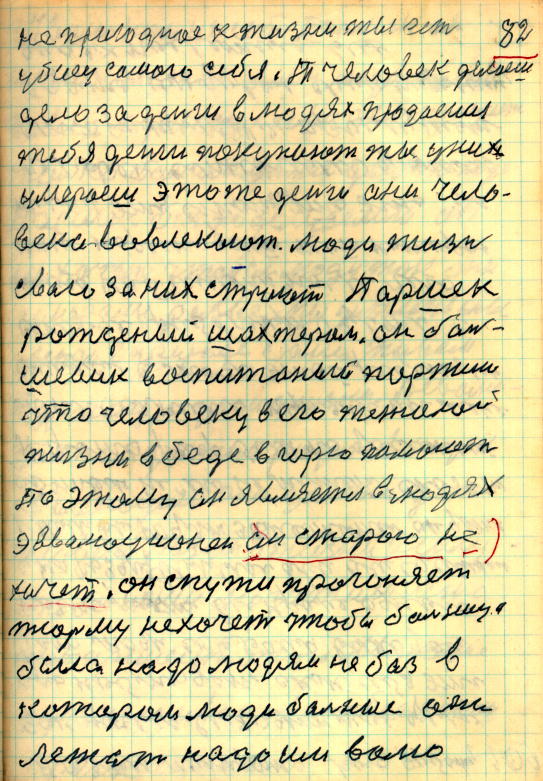 не пригодное к жизни ты ест 82
убиец самого себя. Т человек делаеш
дель за денги в людях продаеш
тебя денги покупают ты у них
умераеш это те денги они чело-
века вовлекают. люди жизн
сваго за них строют Паршек
рожденый шахтером. он бал-
шевик воспитаный партии
что человеку в его тежолой
жизни в беде в горю помогает
По этому он является в людях
эвалюционен он старого не
хочет. он с пути прогоняет
тюрму не хочет чтобы балница
была надо людям не баз в
котором люди балные они
лежат надо им волю